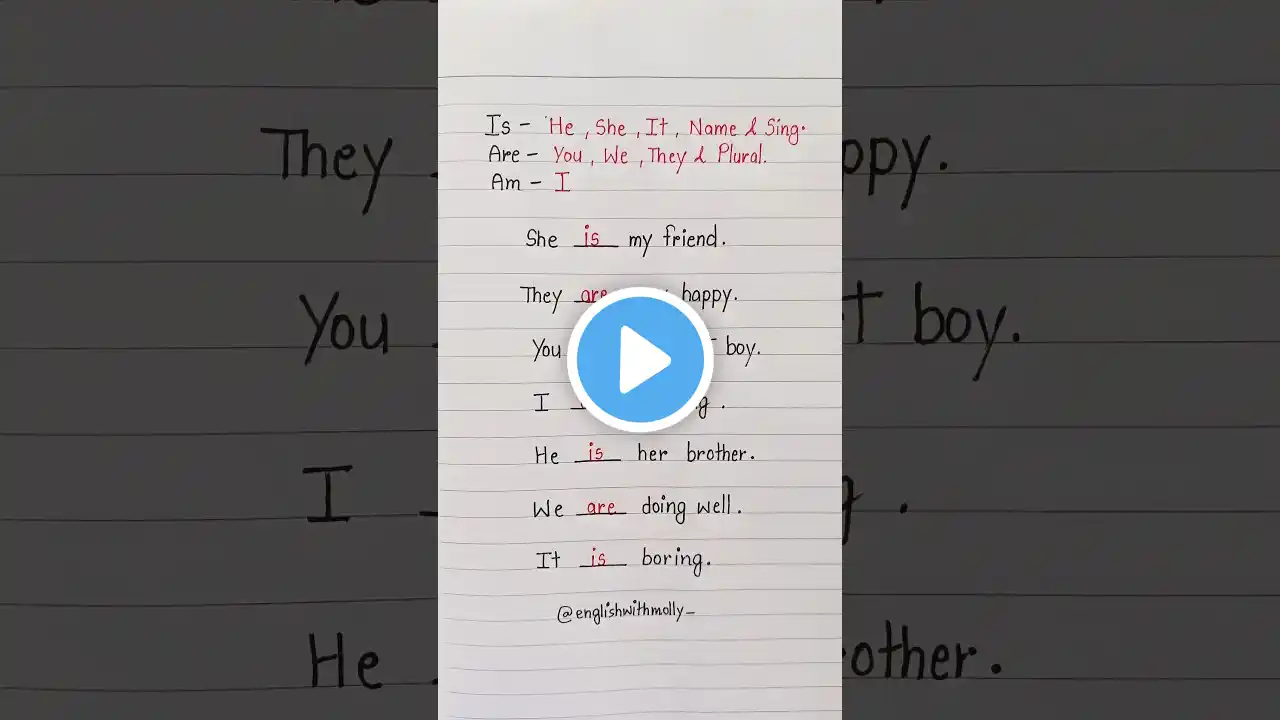 Is - He, She, It, Name & Sing.
Are - You, We, They & Plural.
Am - I
She is my friend.
They are happy.
You boy.
I
He is her brother.
We are doing well.
It is boring.
@englishwithmolly_
They ppy.
You t boy.
I
He other.